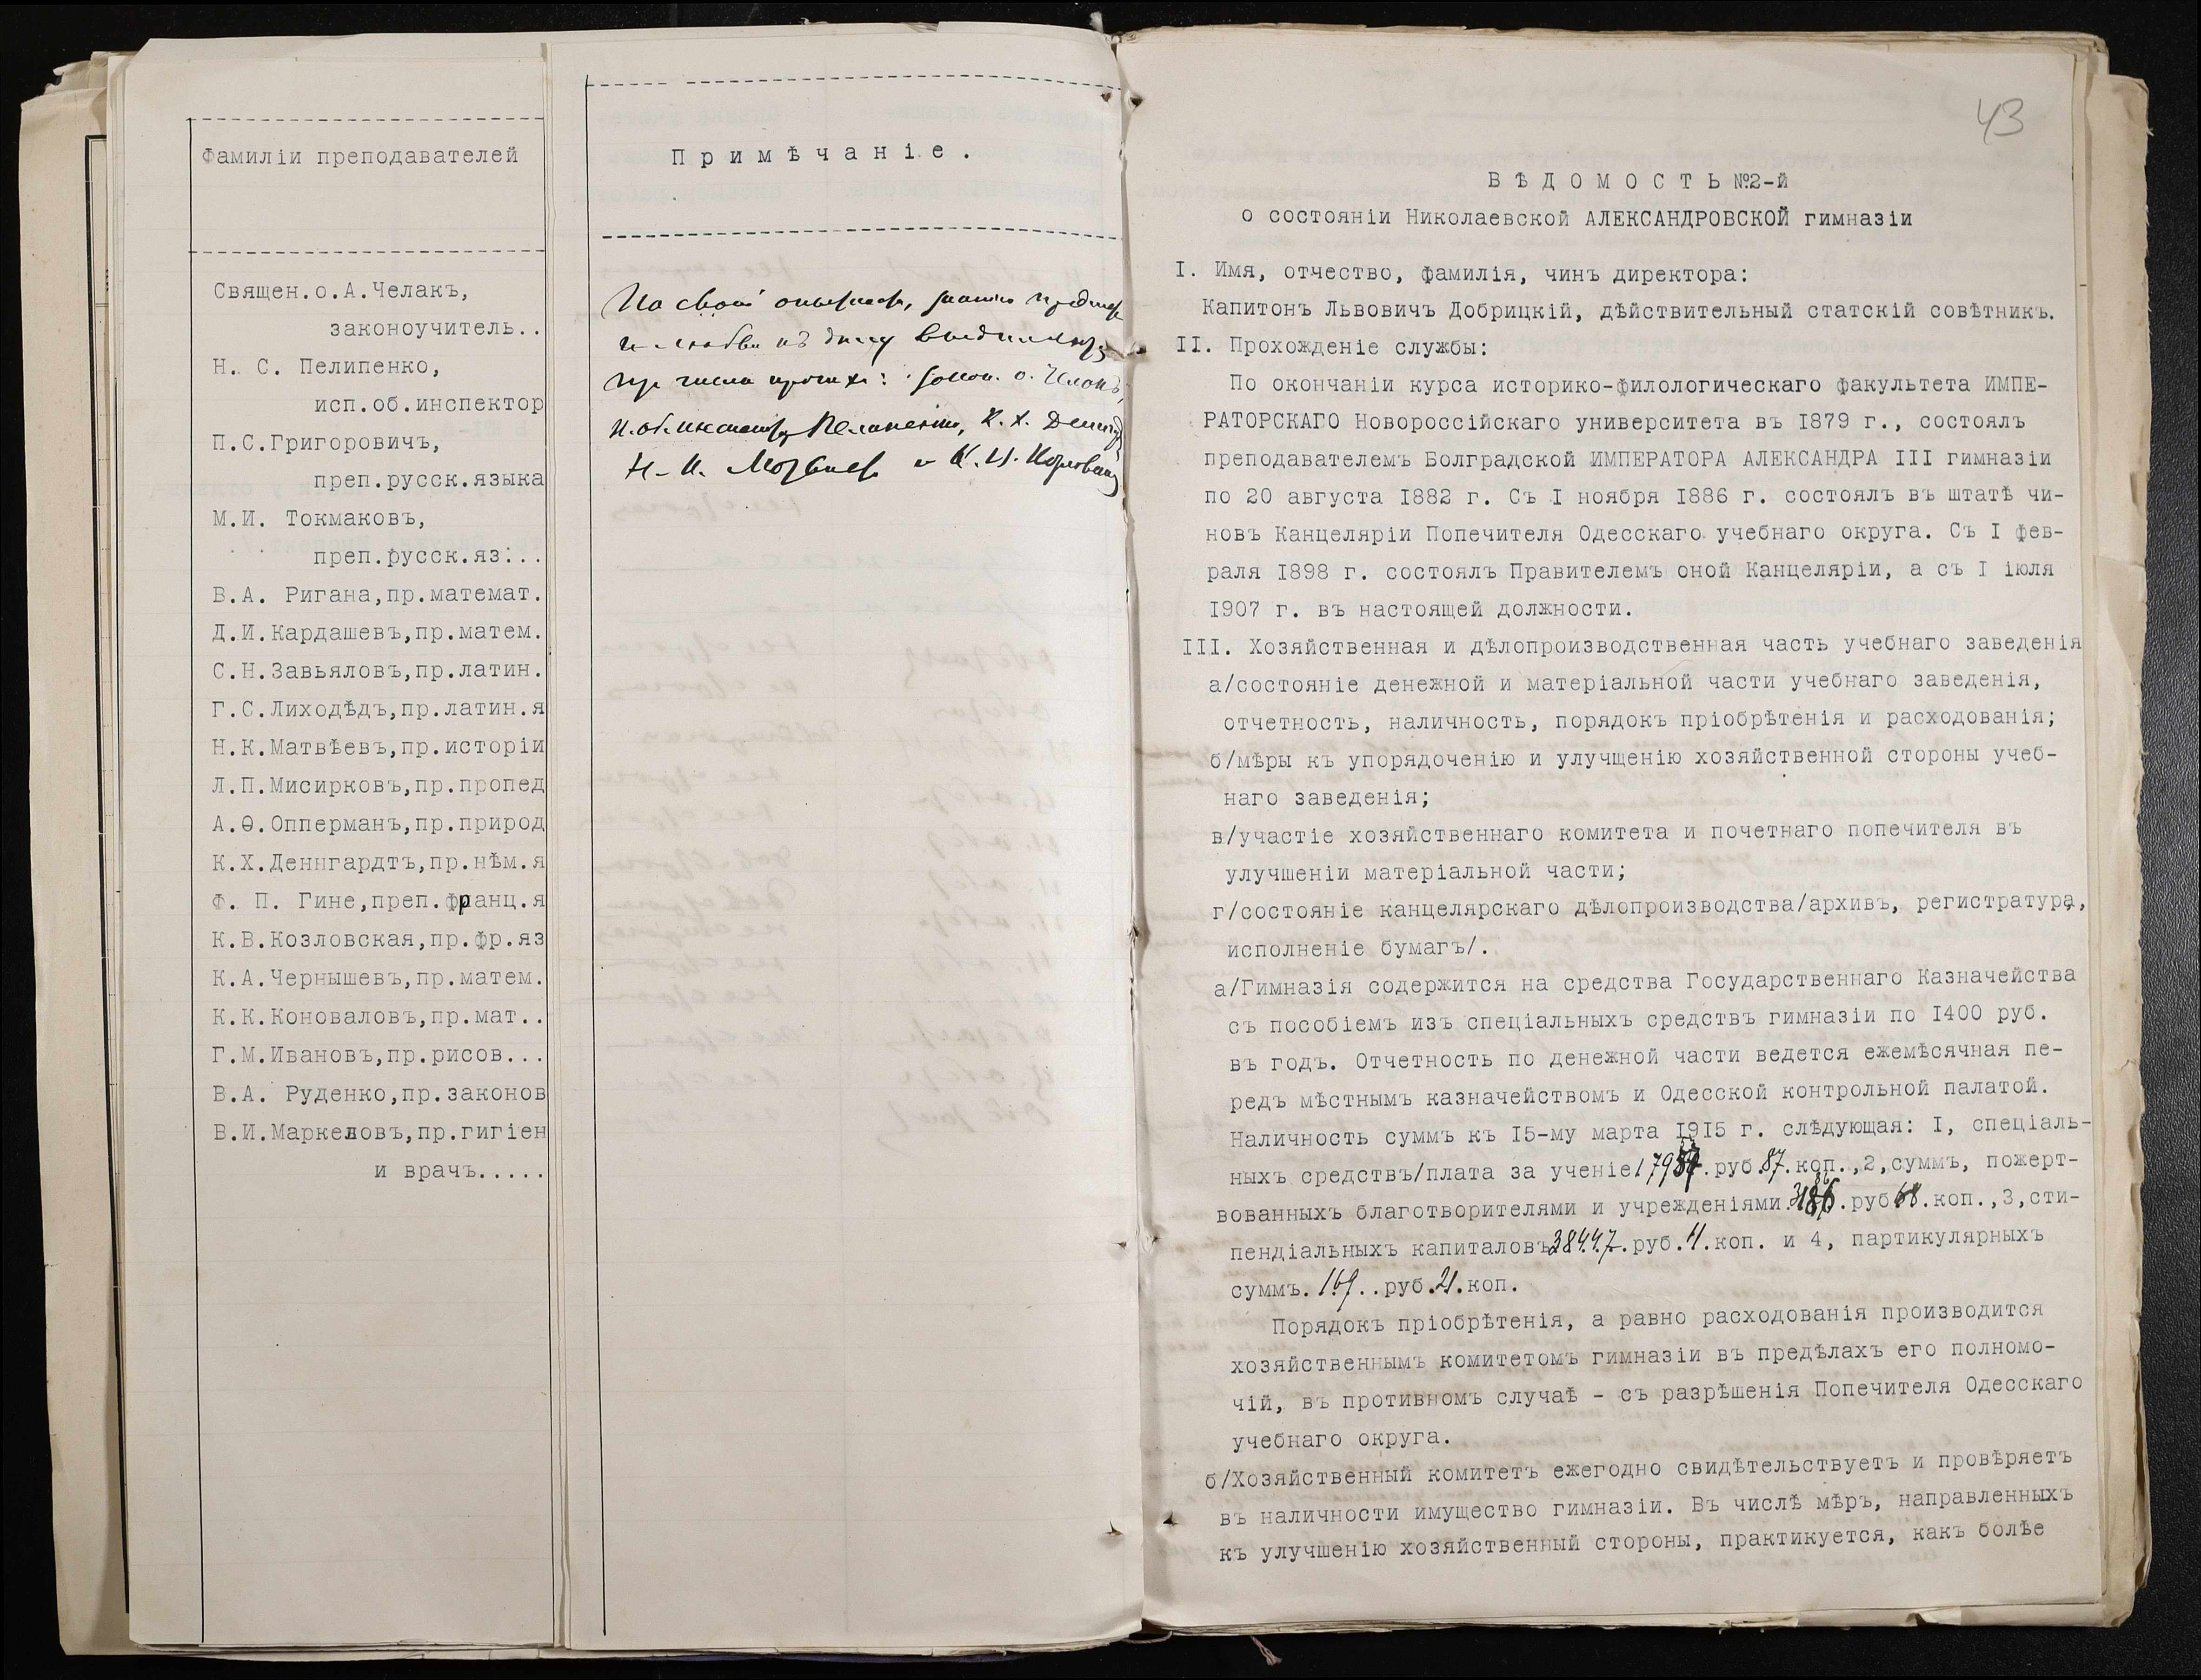 Фамиліи преподавателей
Священ.о.А.Челакъ,
законоучитель..
Н. С. Пелипенко,
исп.об.инспектор
П.С.Григоровичъ,
преп.русск.языка
М.И. Токмаковъ,
преп.русск.яз...
В.А. Ригана,пр.математ.
Д.И.Кардашевъ,пр.матем.
С.Н.Завьяловъ,пр.латин.
Г.С.Лиходѣдъ,пр.латин.я
Н.К.Матвѣевъ,пр.исторіи
Л.П.Мисирковъ,пр.пропед
А.Ѳ.Опперманъ,пр.природ
К.Х.Деннгардтъ,пр.нѣм.я
Ф. П. Гине,преп.франц.я
К.В.Козловская,пр.фр.яз
К.А.Чернышевъ,пр.матем.
К.К.Коноваловъ,пр.мат..
Г.М.Ивановъ,пр.рисов...
В.А. Руденко,пр.законов
В.И.Маркеловъ,пр.гигіен
и врачъ.....
Примѣчаніе.
По своей
и любви къ дѣлу
о. Челакъ,
Пелипенко, К. Х.
Н. К. и
43
ВѢДОМОСТЬ №2-й
о состояніи Николаевской АЛЕКСАНДРОВСКОЙ гимназіи
I. Имя, отчество, фамилія, чинъ директора:
Капитонъ Львовичъ Добрицкій, дѣйствительный статскій совѣтникъ.
II. Прохожденіе службы:
По окончаніи курса историко-филологическаго факультета ИМПЕ-
РАТОРСКАГО Новороссійскаго университета въ I879 г., состоялъ
преподавателемъ Болградской ИМПЕРАТОРА АЛЕКСАНДРА III гимназіи
по 20 августа I882 г. Съ I ноября I886 г. состоялъ въ штатѣ чи-
новъ Канцеляріи Попечителя Одесскаго учебнаго округа. Съ I фев-
раля I898 г. состоялъ Правителемъ оной Канцеляріи, а съ I іюля
I907 г. въ настоящей должности.
III. Хозяйственная и дѣлопроизводственная часть учебнаго заведенія
а/состояніе денежной и матеріальной части учебнаго заведенія,
отчетность, наличность, порядокъ пріобрѣтенія и расходованія;
б/мѣры къ упорядоченію и улучщенію хозяйственной стороны учеб-
наго заведенія;
в/участіе хозяйственнаго комитета и почетнаго попечителя въ
улучшеніи матеріальной части;
г/состояніе канцелярскаго дѣлопроизводства/архивъ, регистратура,
исполненіе бумагъ/.
а/Гимназія содержится на средства Государственнаго Казначейства
съ пособіемъ изъ спеціальныхъ средствъ гимназіи по I400 руб.
въ годъ. Отчетность по денежной части ведется ежемѣсячная пе-
редъ мѣстнымъ казначействомъ и Одесской контрольной палатой.
Наличность суммъ къ I5-му марта I9I5 г. слѣдующая: I, спеціаль-
ныхъ средствъ/плата за ученіе .руб.87.коп.,2,суммъ, пожерт-
вованныхъ благотворителями и учрежденіями. .руб68.коп.,3,сти-
пендіальныхъ капиталовъ38447.руб.4.коп. и 4, партикулярныхъ
суммъ.169..руб.21.коп.
Порядокъ пріобрѣтенія, а равно расходованія производится
хозяйственнымъ комитетомъ гимназіи въ предѣлахъ его полномо-
чій, въ противномъ случаѣ - съ разрѣшенія Попечителя Одесскаго
учебнаго округа.
б/Хозяйственный комитетъ ежегодно свидѣтельствуетъ и провѣряетъ
въ наличности имущество гимназіи. Въ числѣ мѣръ, направленныхъ
къ улучшенію хозяйственный стороны, практикуется, какъ болѣе